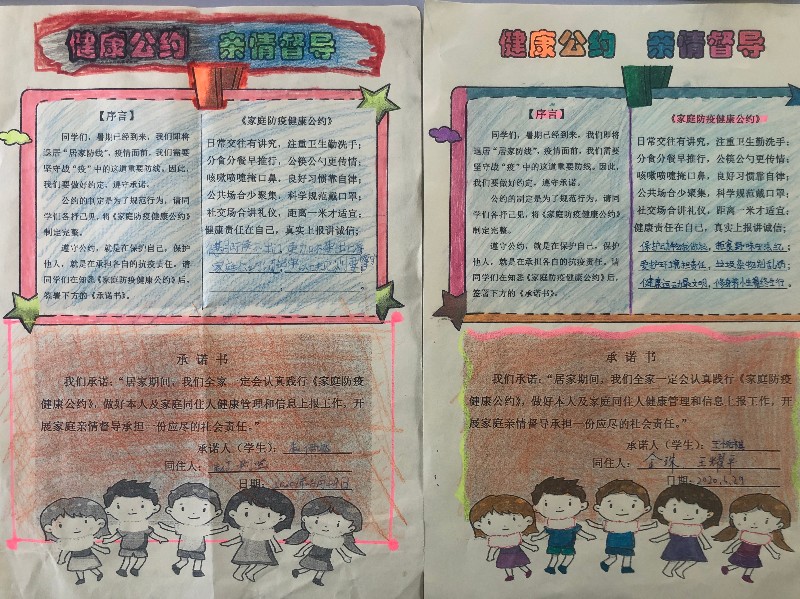 健康公约 亲情督导
【序言】
同学们，暑期已经到来，我们即将
退居“居家防线”，疫情面前，我们需要
坚守战“疫”中的这道重要防线。因此，
我们要做好约定，遵守承诺。
公约的制定是为了规范行为，请同
学们各抒己见，将《家庭防疫健康公约》
制定完整。
遵守公约，就是在保护自己，保护
他人，就是在承担各自的抗疫责任。请
同学们在知悉《家庭防疫健康公约》后，
签署下方的《承诺书》。
《家庭防疫健康公约》
日常交往有讲究，注重卫生勤洗手；
分食分餐早推行，公筷公勺更传情；
咳嗽咳嚏掩口鼻，良好习惯靠自律；
公共场合少聚集，科学规范戴口罩；
社交场合讲礼仪，距离一米才适宜；
健康责任在自己，真实上报讲诚信；
承诺书
我们承诺：“居家期间，我们全家一定会认真践行《家庭防疫
健康公约》，做好本人及家庭同住人健康管理和信息上报工作，开
展家庭亲情督导承担一份应尽的社会责任。”
承诺人（学生）：
同住人：
日期：
健康公约 亲情督导
【序言】
同学们，暑期已经到来，我们即将
退居“居家防线”，疫情面前，我们需要
坚守战“疫”中的这道重要防线。因此，
我们要做好约定，遵守承诺。
公约的制定是为了规范行为，请同
学们各抒己见，将《家庭防疫健康公约》
制定完整。
遵守公约，就是在保护自己，保护
他人，就是在承担各自的抗疫责任。请
同学们在知悉《家庭防疫健康公约》后，
签署下方的《承诺书》。
《家庭防疫健康公约》
日常交往有讲究，注重卫生勤洗手；
分食分餐早推行，公筷公勺更传情；
咳嗽咳嚏掩口鼻，良好习惯靠自律；
公共场合少聚集，科学规范戴口罩；
社交场合讲礼仪，距离一米才适宜；
健康责任在自己，真实上报讲诚信；
爱护环境担责任，垃圾杂物别乱扔；
承诺书
我们承诺：“居家期间，我们全家一定会认真践行《家庭防疫
健康公约》，做好本人及家庭同住人健康管理和信息上报工作，开
展家庭亲情督导承担一份应尽的社会责任。”
承诺人（学生）：
同住人：金珠 王耀平
日期：2020.6.29